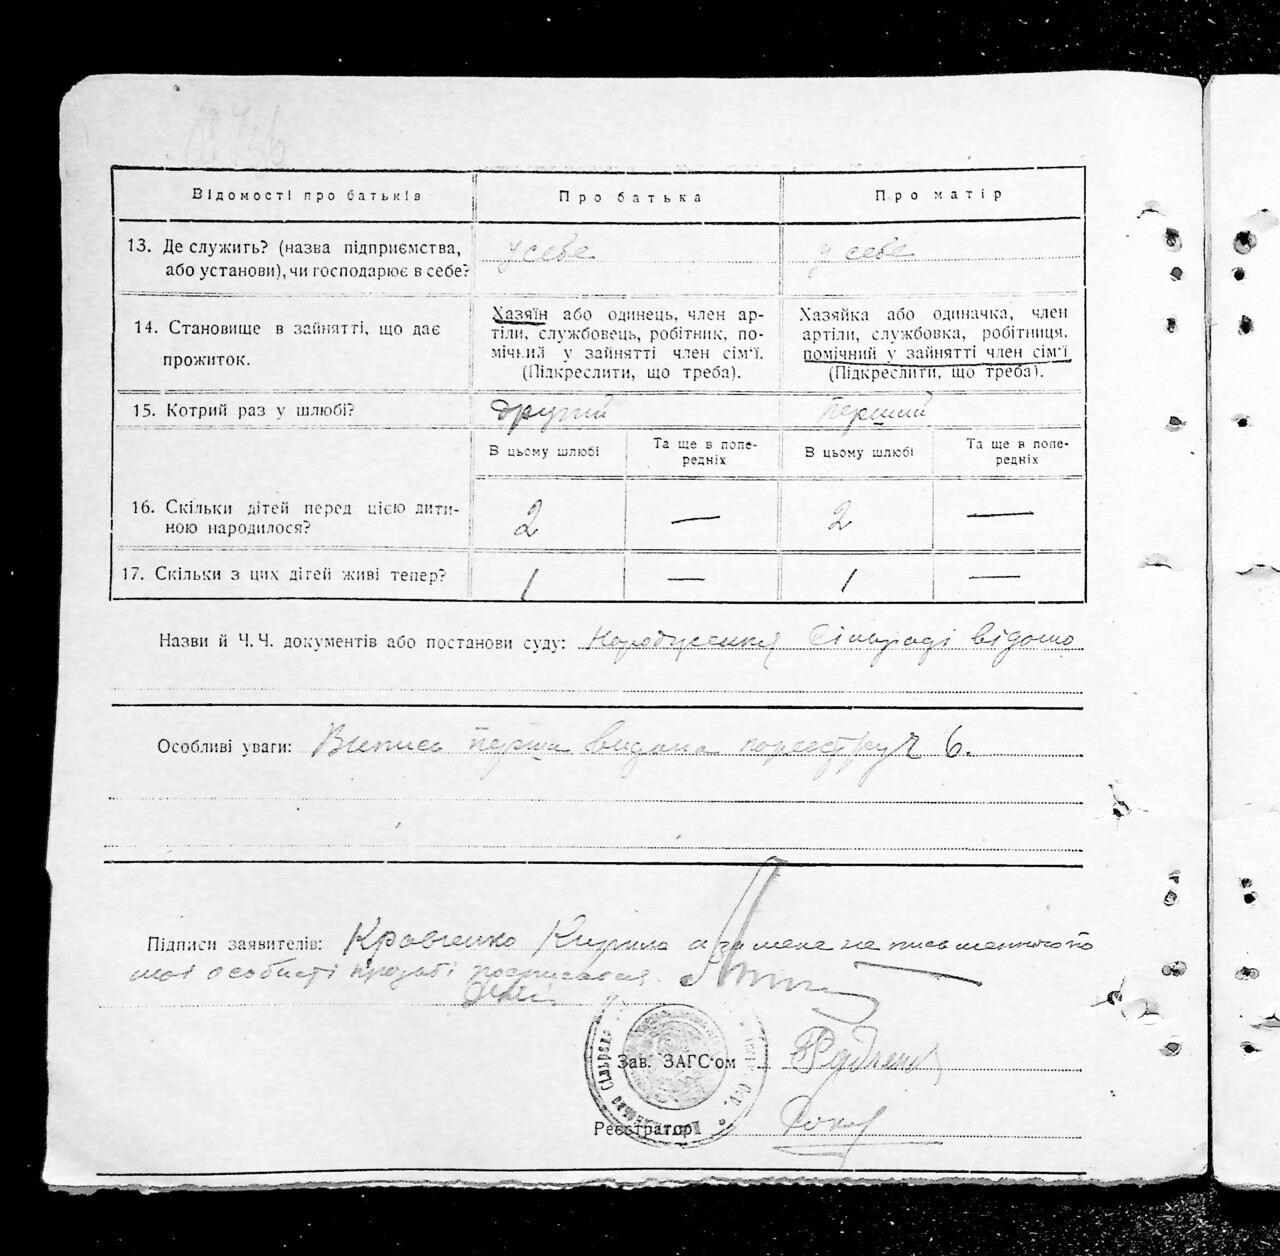 Відомості про батьків
Про батька
Про матір
13. Де служить? (назва підприємства,
або установи), чи господарює в себе?
у себе
у себе
14. Становище в зайнятті, що дає
прожиток.
Хазяїн або одинець, член ар-
тіли, службовець, робітник, по-
мічний у зайнятті член сім'ї.
(Підкреслити, що треба).
Хазяйка або одиначка, член
артіли, службовка, робітниця,
помічний у зайнятті член сім'ї
(Підкреслити, що треба).
15. Котрий раз у шлюбі?
другий
перший
В цьому шлюбі
Та ще в попе-
редніх
В цьому шлюбі
Та ще в попе-
редніх
16. Скільки дітей перед цією дити-
ною народилося?
2
—
2
—
17. Скільки з цих дітей живі тепер?
1
—
1
—
Назви й Ч. Ч. документів або постанови суду: Сільраді відомо
Особливі уваги: Выпись перша видана по реєстру Ч 6.
Підписи заявителів: Кравченко Кирило а за мене не письменного по
моей особисті прозьбі росписався
Зав. ЗАГС'ом
Реєстратор